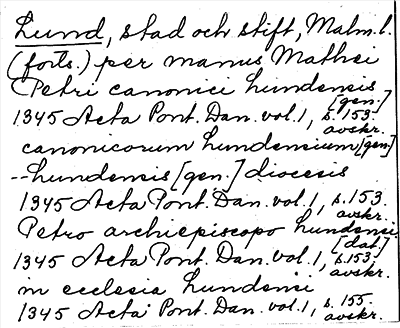 Lund, stad och stift, Malm.l.
(forts.) per manus Mathei
Petri canonici lundensis
[gen.]
1345 Acta Pont. Dan. vol. 1, s. 153.
avskr.
canonicorum lundensium [gen]
--lundensis [gen.] diocesis
1345 Acta Pont. Dan. vol. 1, s. 153.
avskr.
Petro archiepiscopo lundensi
[dat.]
1345 Acta Pont. Dan. vol. 1, s. 153.
avskr.
in ecclesia lundensi
1345 Acta Pont. Dan. vol. 1, s. 155.
avskr.